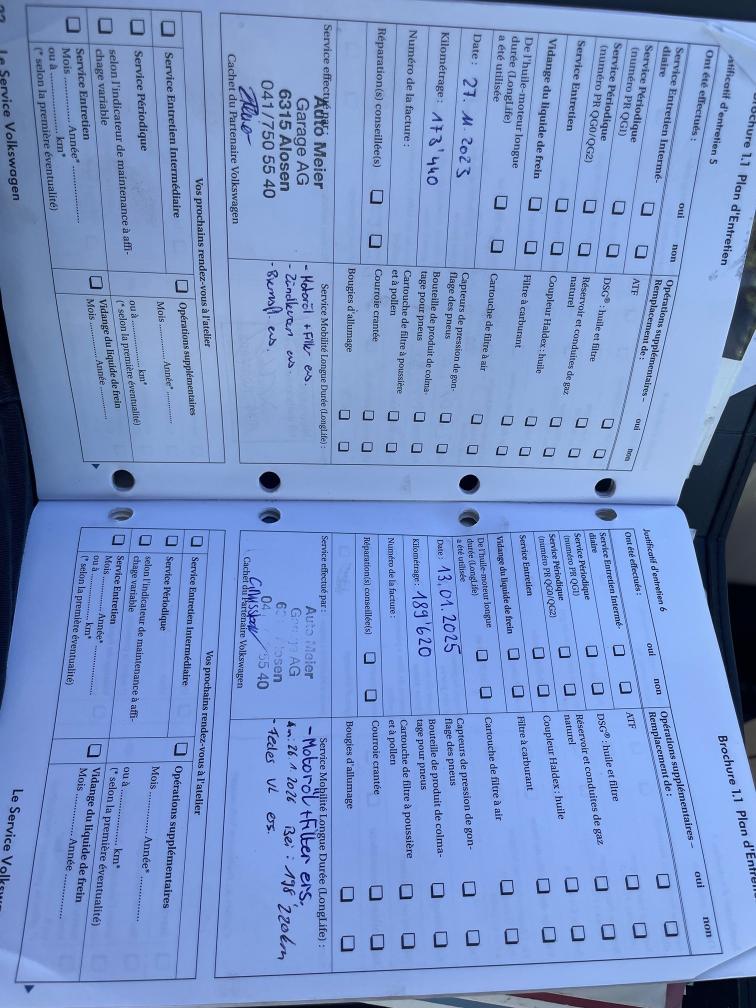 Brochure 1.1 Plan d'Entretien
d'entretien 5
Ont été effectués :
oui
non
Service Entretien Intermé-
diaire
Service Périodique
(numéro PR QG1)
Service Périodique
(numéro PR QG0/QG2)
Service Entretien
Vidange du liquide de frein
De l'huile-moteur longue
durée (LongLife)
a été utilisée
Date : 27. 11. 2023
Kilométrage : 173'440
Numéro de la facture :
Réparation(s) conseillée(s)
Service effectué par :
Auto Meier
Garage AG
6315 Alosen
041/750 55 40
Cachet du Partenaire Volkswagen
Opérations supplémentaires –
Remplacement de :
oui
non
ATF
DSG® : huile et filtre
Réservoir et conduites de gaz
naturel
Coupleur Haldex : huile
Filtre à carburant
Cartouche de filtre à air
Capteurs de pression de gon-
flage des pneus
Bouteille de produit de colma-
tage pour pneus
Cartouche de filtre à poussière
et à pollen
Courroie crantée
Bougies d'allumage
Service Mobilité Longue Durée (LongLife) :
- Motoröl + Filter ers.
- Zündkerzen ers.
Vos prochains rendez-vous à l'atelier
Service Entretien Intermédiaire
Service Périodique
selon l'indicateur de maintenance à affi-
chage variable
Service Entretien
Mois ............ Année* ............
ou à ............ km*
(* selon la première éventualité)
Opérations supplémentaires
Mois ............ Année* ............
ou à ............ km*
(* selon la première éventualité)
Vidange du liquide de frein
Mois ............ Année ............
Le Service Volkswagen
Brochure 1.1 Plan d'Entretien
Justificatif d'entretien 6
Ont été effectués :
oui
non
Service Entretien Intermé-
diaire
Service Périodique
(numéro PR QG1)
Service Périodique
(numéro PR QG0/QG2)
Service Entretien
Vidange du liquide de frein
De l'huile-moteur longue
durée (LongLife)
a été utilisée
Date : 13.01.2025
Kilométrage : 189'620
Numéro de la facture :
Réparation(s) conseillée(s)
Service effectué par :
Auto Meier
AG
Alosen
55 40
Cachet du Partenaire Volkswagen
Opérations supplémentaires –
Remplacement de :
oui
non
ATF
DSG® : huile et filtre
Réservoir et conduites de gaz
naturel
Coupleur Haldex : huile
Filtre à carburant
Cartouche de filtre à air
Capteurs de pression de gon-
flage des pneus
Bouteille de produit de colma-
tage pour pneus
Cartouche de filtre à poussière
et à pollen
Courroie crantée
Bougies d'allumage
Service Mobilité Longue Durée (LongLife) :
- Motoröl + Filter ers.
26.1.2026 Bei: 198'220km
- Feder VL ers.
Vos prochains rendez-vous à l'atelier
Service Entretien Intermédiaire
Service Périodique
selon l'indicateur de maintenance à affi-
chage variable
Service Entretien
Mois ............ Année* ............
ou à ............ km*
(* selon la première éventualité)
Opérations supplémentaires
Mois ............ Année* ............
ou à ............ km*
(* selon la première éventualité)
Vidange du liquide de frein
Mois ............ Année ............
Le Service Volksw